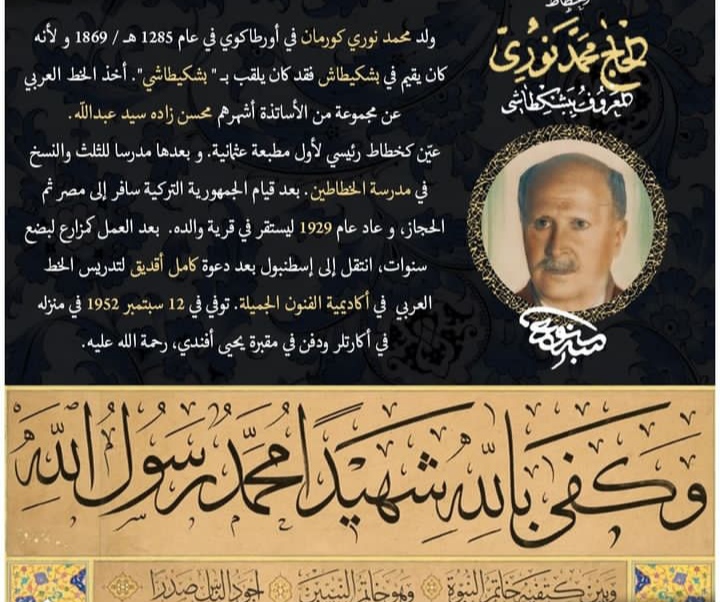 الخطاط
الحاج محمد نوري
المعروف ببشكطاشي
ولد محمد نوري كورمان في أورطاكوي في عام 1285 هـ / 1869 و لأنه
كان يقيم في بشكيطاش فقد كان يلقب بـ " بشكيطاشي". أخذ الخط العربي
عن مجموعة من الأساتذة أشهرهم محسن زاده سيد عبداللّه.
عيّن كخطاط رئيسي لأول مطبعة عثمانية. و بعدها مدرسا للثلث والنسخ
في مدرسة الخطاطين. بعد قيام الجمهورية التركية سافر إلى مصر ثم
الحجاز، و عاد عام 1929 ليستقر في قرية والده. بعد العمل كمزارع لبضع
سنوات، انتقل إلى إسطنبول بعد دعوة كامل أقديق لتدريس الخط
العربي في أكاديمية الفنون الجميلة. توفي في 12 سبتمبر 1952 في منزله
في أكارتلر ودفن في مقبرة يحيى أفندي، رحمة الله عليه.
وَكَفَى بِاللَّهِ شَهِيدًا مُحَمَّدٌ رَسُولُ اللَّهِ
وبين كتفيه خاتم النبوة وهو خاتم النبيين اجود الناس صدرا